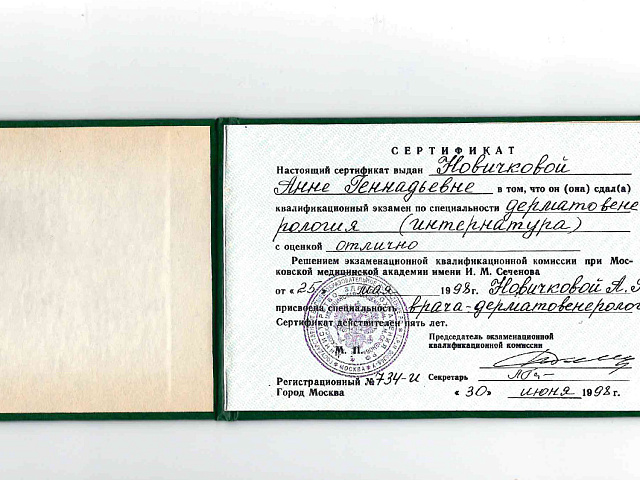 СЕРТИФИКАТ
Настоящий сертификат выдан Новичковой
Анне Геннадьевне в том, что он (она) сдал(а)
квалификационный экзамен по специальности дерматовене
рология (интернатура)
с оценкой отлично
Решением экзаменационной квалификационной комиссии при Мос-
ковской медицинской академии имени И. М. Сеченова
от «25» мая 1998г. Новичковой А.
присвоена специальность врача-дерматовенеролог
Сертификат действителен пять лет.
Председатель экзаменационной
квалификационной комиссии
М. П.
Регистрационный № 734-и Секретарь
Город Москва «30» июня 1998 г.